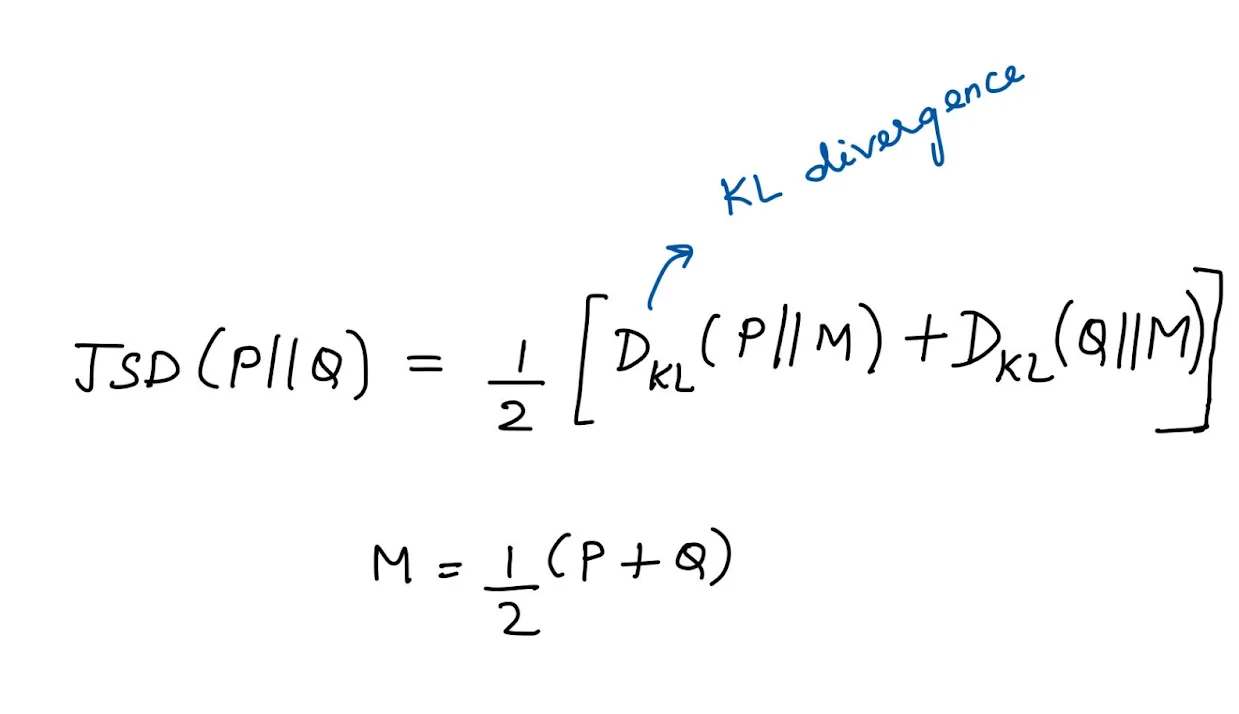 KL divergence
JSD(P||Q) = 1/2 [D_KL(P||M) + D_KL(Q||M)]
M = 1/2 (P + Q)